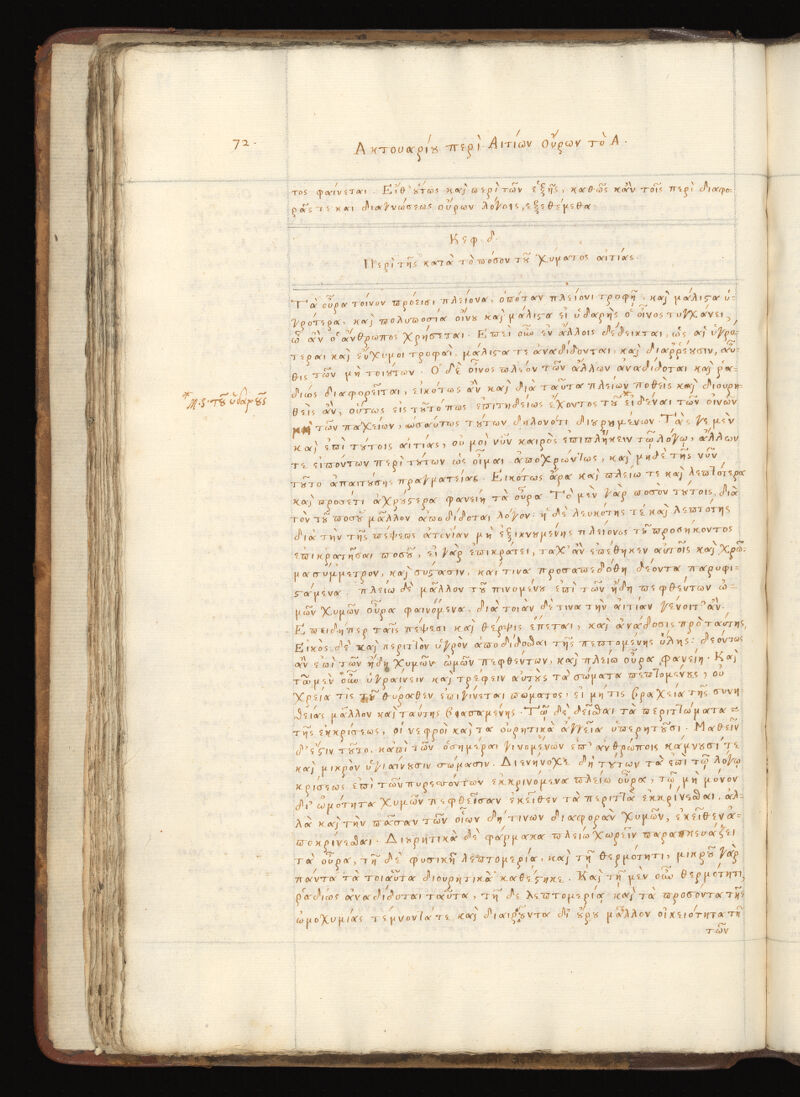 72.
Ακτουαρίου περὶ Αἰτίων Οὔρων τὸ Α.
τος φαίνεται. Εἶθ' οὕτως καὶ περὶ τῶν ἑξῆς, καθὼς κἂν τοῖς περὶ διαφο-
ρᾶς τε καὶ διαγνώσεως οὔρων λόγοις, ἐξεθέμεθα.
Κεφ. δ.
Περὶ τῆς κατὰ τὸ πόσον τοῦ χύματος αἰτίας.
Τὰ οὖρα τοίνυν πρόεισι πλείονα, ὁπόταν πλείονι τροφῇ, καὶ μάλιστα ὑ-
γρότερα, καὶ πολυποσία οἴνου καὶ μάλιστα εἰ ὑδαρὴς ὁ οἶνος τυγχάνει,
ᾧ ἂν ὁ ἄνθρωπος χρήσεται. Ἐπεὶ οὖν ἐν ἄλλοις δέδεικται, ὡς αἱ ὑγρο-
τεραι καὶ εὔχυμοι τροφαὶ, μάλιστα τε ἀναδίδονται, καὶ διαῤῥέουσιν, αὖ-
θις τῶν μὴ τοιούτων. Ὁ δὲ οἶνος πλέον τῶν ἄλλων ἀναδίδοται καὶ ῥα-
δίως διαφορεῖται, εἰκότως ἂν καὶ διὰ ταῦτα πλείων ποθεὶς καὶ διουρη-
*M.S. τοῦ ὑδαροῦς
θεὶς ἂν, οὕτως εἰς τοῦτο πως ἐπιτηδείως ἔχοντος τοῦ* εἰδέναι τῶν οἴνων
τῶν παχείων, ὡσαύτως τούτων δηλονότι διουρημένων. Τὰς γε μὲν
καὶ ἐπὶ τούτοις αἰτίας, οὔ μοι νῦν καιρὸς ἐπιπλήκειν τῷ λόγῳ, ἄλλων
τε εἰπόντων περὶ τούτων ὡς οἶμαι ἀποχρώντως, καὶ μηδὲ τῆς νῦν
τοῦτο ἀπαιτούσης πραγματείας. Εἰκότως ἄρα καὶ πλείω τε καὶ λεπτότερα
καὶ προσέτι ἀχρούστερα φανείη τὰ οὖρα. Τὸ μὲν γὰρ ποσὸν τούτοις, διὰ
τὸν τοῦ ποσοῦ μᾶλλον ἀποδίδοται λόγον: ἡ δὲ λευκότης τὲ καὶ λεπτότης
διὰ τὴν τῆς πέψεως ἀτονίαν μὴ ἐξικνουμένης πλείονος τοῦ προσήκοντος
ἐπικρατῆσαι ποσοῦ, εἰ γὰρ ἐπικρατεῖ, ταχ' ἂν ἐπέθηκεν αὐτοῖς καὶ χρῶ-
μα σύμμετρον, καὶ σύστασιν, καί τινα προσαπεδόθη δέοντα παρυφι-
στάμενα. πλείω δὲ μᾶλλον τοῦ πινομένου ἐπὶ τῶν ἤδη πεφθέντων ὠ-
μῶν χυμῶν οὖρα φαινόμενα, διὰ τοιὰν δέ τινα τὴν αἰτίαν γένοιτ' ἂν.
Ἐπειδήπερ ταῖς πέψεσι καὶ θρέψις ἕπεται, καὶ ἀνάδοσις πρὸ ταύτης.
Εἰκὸς δὲ καὶ περιττὸν ὑγρὸν ἀποδίδοσθαι τῆς πεπτομένης ὕλης: δεόντως
ἂν ἐπὶ τῶν ἤδη χυμῶν ὠμῶν πεφθέντων, καὶ πλείω οὖρα φανείη. Καὶ
τῷ μὲν οὖν ὑγραίνειν καὶ τρέφειν αὐτοὺς τὰ σώματα πεπτομένους, οὐ
χρεία τις τοῦ θύραθεν ἐπιγίνεται πώματος, εἰ μή τις βραχεῖα τῆς συνη-
θείας μᾶλλον καὶ ταύτης βιασαμένης. Τῷ δὲ δεῖσθαι τὰ περιττώματα
τῆς ἐκκρίσεως, οἱ νεφροὶ καὶ τὰ οὐρητικὰ ἀγγεῖα ὑπερητοῦσι. Μαθεῖν
δ' ἔστιν τοῦτο, κἀπὶ τῶν ὁσημέραι γινομένων ἐπ' ἀνθρώποις κάμνουσί τε
καὶ μικρὸν ὑγιαίνουσιν σώμασιν. Διενήνοχε δὴ τούτων τὰ ἐπὶ τῷ λόγῳ
κρίσεως ἐπὶ τῶν πυρεσσόντων ἐκκρινόμενα πλείω οὖρα, τῷ μὴ μόνον
δι' ὠμότητα χυμῶν πεφθεῖσαν ἐκεῖθεν τὰ περιττὰ ἐκκρίνεσθαι, ἀλ-
λὰ καὶ τὴν πᾶσαν τῶν οἵων δή τινων διαφορὰν χυμῶν, ἐκεῖθεν ἀ-
ποκρίνεσθαι. Διουρητικὰ δὲ φάρμακα πλείω χωρεῖν παρασκευάζει
τὰ οὖρα, τῇ δὲ φυσικῇ λεπτομερίᾳ, καὶ τῇ θερμότητι, μικροῦ γὰρ
πάντα τὰ τοιαῦτα διουρητικὰ καθέστηκε. Καὶ τῇ μὲν οὖν θερμότητι,
ῥαδίως ἀναδίδοται ταῦτα, τῇ δὲ λεπτομερίᾳ καὶ τὰ προσόντα τῆς
ὠμοχυμίας τέμνοντά τε καὶ διαιροῦντα δι' οὔρου μᾶλλον οἰκειότητα τῇ
τῶν